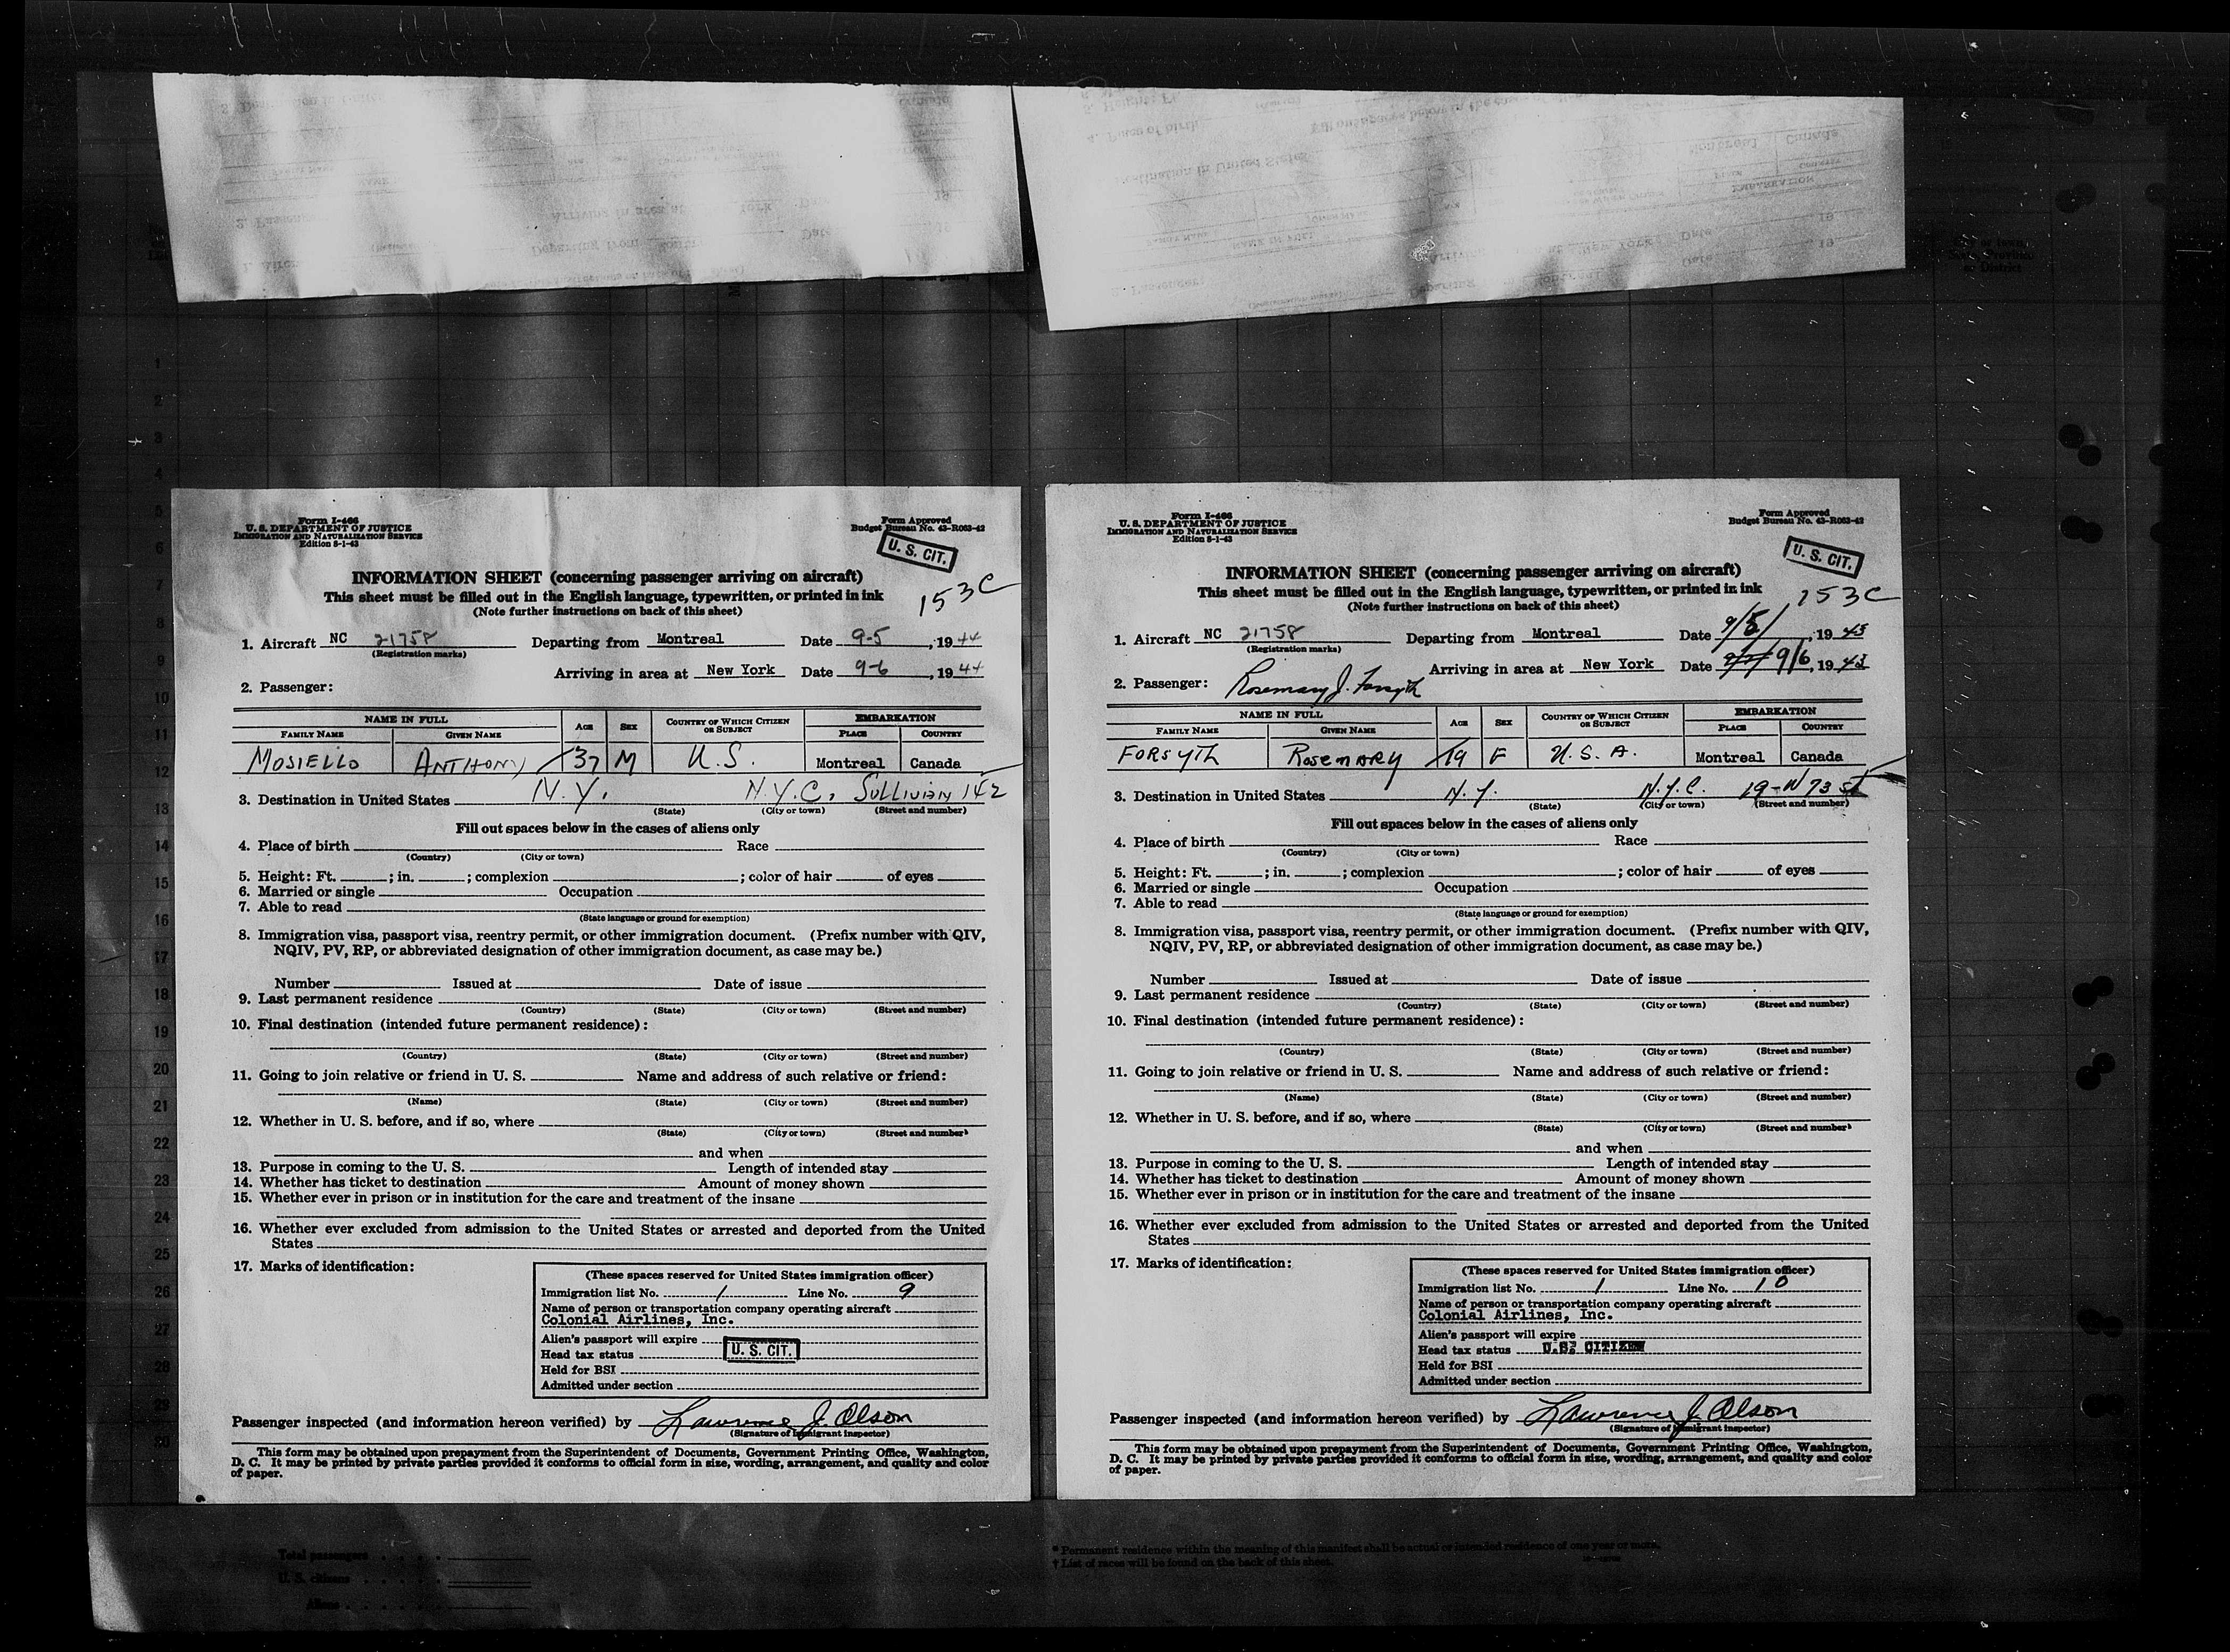 Form I-466
U. S. DEPARTMENT OF JUSTICE
IMMIGRATION AND NATURALIZATION SERVICE
Edition 8-1-43
Form Approved
Budget Bureau No. 43-R063-42
U. S. CIT.
INFORMATION SHEET (concerning passenger arriving on aircraft)
This sheet must be filled out in the English language, typewritten, or printed in ink
(Note further instructions on back of this sheet)
153C
1. Aircraft NC 21758 Departing from Montreal Date 9-5, 1944
(Registration marks)
Arriving in area at New York Date 9-6, 1944
2. Passenger:
NAME IN FULL AGE SEX COUNTRY OF WHICH CITIZEN OR SUBJECT EMBARKATION
FAMILY NAME GIVEN NAME PLACE COUNTRY
MOSIELLO ANTHONY 37 M U.S. Montreal Canada
3. Destination in United States N.Y. N.Y.C. SULLIVAN 142
(State) (City or town) (Street and number)
Fill out spaces below in the cases of aliens only
4. Place of birth Race
(Country) (City or town)
5. Height: Ft. ; in. ; complexion ; color of hair of eyes
6. Married or single Occupation
7. Able to read
(State language or ground for exemption)
8. Immigration visa, passport visa, reentry permit, or other immigration document. (Prefix number with QIV,
NQIV, PV, RP, or abbreviated designation of other immigration document, as case may be.)
Number Issued at Date of issue
9. Last permanent residence
(Country) (State) (City or town) (Street and number)
10. Final destination (intended future permanent residence):
(Country) (State) (City or town) (Street and number)
11. Going to join relative or friend in U. S. Name and address of such relative or friend:
(Name) (State) (City or town) (Street and number)
12. Whether in U. S. before, and if so, where
(State) (City or town) (Street and number)
and when
13. Purpose in coming to the U. S. Length of intended stay
14. Whether has ticket to destination Amount of money shown
15. Whether ever in prison or in institution for the care and treatment of the insane
16. Whether ever excluded from admission to the United States or arrested and deported from the United
States
17. Marks of identification:
(These spaces reserved for United States immigration officer)
Immigration list No. 1 Line No. 9
Name of person or transportation company operating aircraft
Colonial Airlines, Inc.
Alien's passport will expire
Head tax status U. S. CIT.
Held for BSI
Admitted under section
Passenger inspected (and information hereon verified) by Lawrence J. Olson
(Signature of immigrant inspector)
This form may be obtained upon prepayment from the Superintendent of Documents, Government Printing Office, Washington,
D. C. It may be printed by private parties provided it conforms to official form in size, wording, arrangement, and quality and color
of paper.
Form I-466
U. S. DEPARTMENT OF JUSTICE
IMMIGRATION AND NATURALIZATION SERVICE
Edition 8-1-43
Form Approved
Budget Bureau No. 43-R063-42
U. S. CIT.
INFORMATION SHEET (concerning passenger arriving on aircraft)
This sheet must be filled out in the English language, typewritten, or printed in ink
(Note further instructions on back of this sheet)
153C
1. Aircraft NC 21758 Departing from Montreal Date 9/5/, 1943
(Registration marks)
Arriving in area at New York Date 9/6, 1943
2. Passenger: Rosemary J. Forsyth
NAME IN FULL AGE SEX COUNTRY OF WHICH CITIZEN OR SUBJECT EMBARKATION
FAMILY NAME GIVEN NAME PLACE COUNTRY
FORSYTH ROSEMARY 19 F U.S.A. Montreal Canada
3. Destination in United States N.Y. N.Y.C. 19-W 73 St
(State) (City or town) (Street and number)
Fill out spaces below in the cases of aliens only
4. Place of birth Race
(Country) (City or town)
5. Height: Ft. ; in. ; complexion ; color of hair of eyes
6. Married or single Occupation
7. Able to read
(State language or ground for exemption)
8. Immigration visa, passport visa, reentry permit, or other immigration document. (Prefix number with QIV,
NQIV, PV, RP, or abbreviated designation of other immigration document, as case may be.)
Number Issued at Date of issue
9. Last permanent residence
(Country) (State) (City or town) (Street and number)
10. Final destination (intended future permanent residence):
(Country) (State) (City or town) (Street and number)
11. Going to join relative or friend in U. S. Name and address of such relative or friend:
(Name) (State) (City or town) (Street and number)
12. Whether in U. S. before, and if so, where
(State) (City or town) (Street and number)
and when
13. Purpose in coming to the U. S. Length of intended stay
14. Whether has ticket to destination Amount of money shown
15. Whether ever in prison or in institution for the care and treatment of the insane
16. Whether ever excluded from admission to the United States or arrested and deported from the United
States
17. Marks of identification:
(These spaces reserved for United States immigration officer)
Immigration list No. 1 Line No. 10
Name of person or transportation company operating aircraft
Colonial Airlines, Inc.
Alien's passport will expire
Head tax status U.S. CITIZEN
Held for BSI
Admitted under section
Passenger inspected (and information hereon verified) by Lawrence J. Olson
(Signature of immigrant inspector)
This form may be obtained upon prepayment from the Superintendent of Documents, Government Printing Office, Washington,
D. C. It may be printed by private parties provided it conforms to official form in size, wording, arrangement, and quality and color
of paper.
Total passengers
U. S. citizens
Aliens
* Permanent residence within the meaning of this manifest shall be actual or intended residence of one year or more.
† List of races will be found on the back of this sheet.